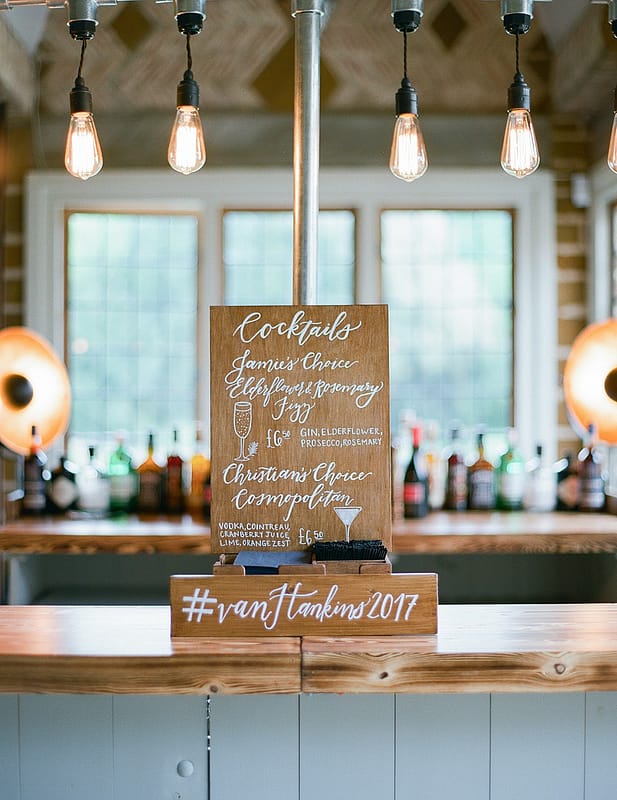 Cocktails
Jamie's Choice
Elderflower & Rosemary
Fizz
£6.50
GIN, ELDERFLOWER,
PROSECCO, ROSEMARY
Christian's Choice
Cosmopolitan
VODKA, COINTREAU,
CRANBERRY JUICE
LIME, ORANGE ZEST
£6.50
#vanHankins2017